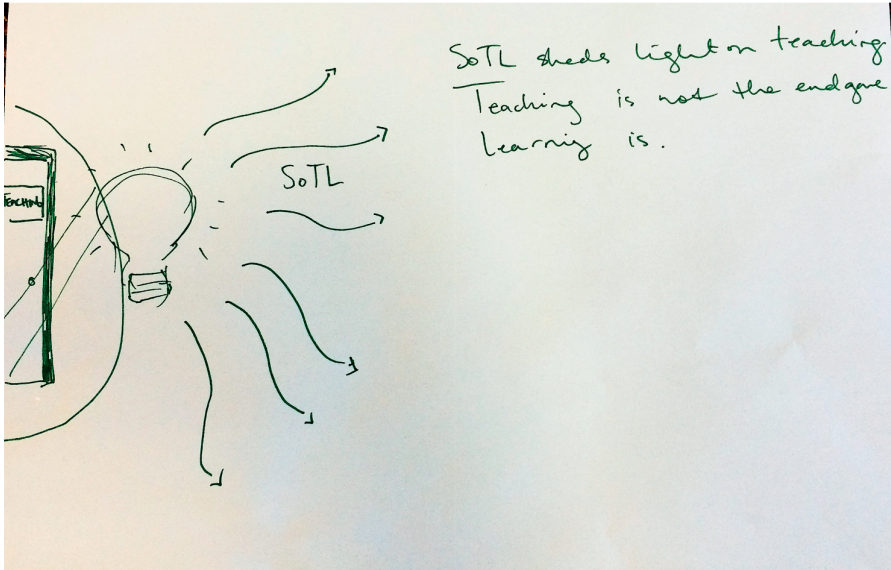 SoTL sheds light on teaching
Teaching is not the endgame
Learnig is.
SoTL
TEACHING